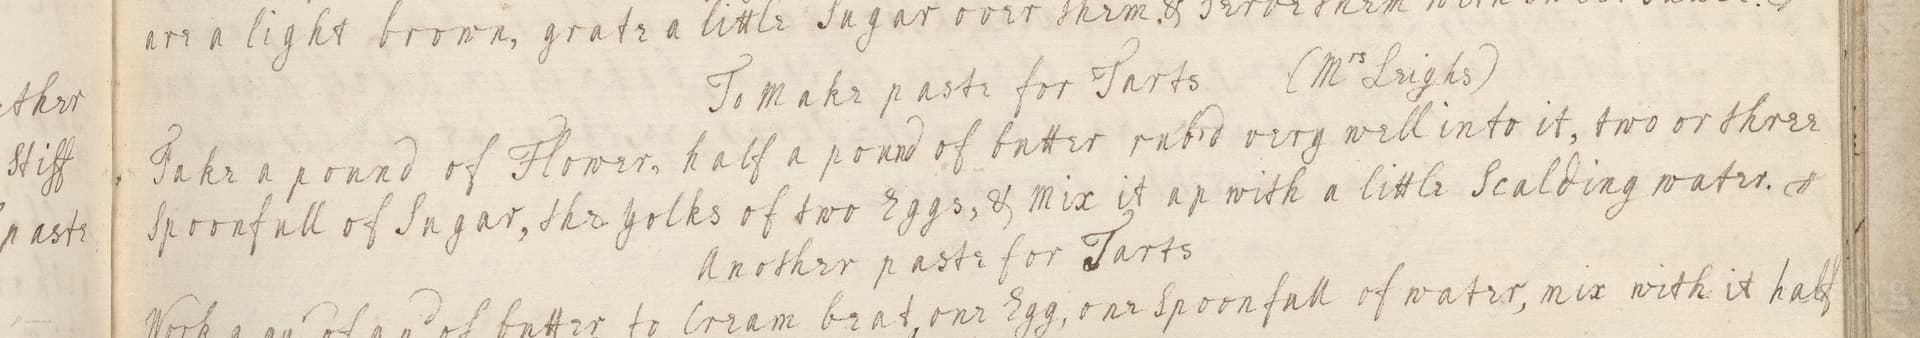 ether
Stiff
paste
are a light brown, grate a little Sugar over them. & Serve them with
To make paste for Tarts (Mrs Leighs)
Take a pound of Flower, half a pound of butter rub'd very well into it, two or three
Spoonfull of Sugar, the yolks of two Eggs, & mix it up with a little Scalding water.
Another paste for Tarts
Work a of a of butter to Cream beat, one Egg, one Spoonfull of water, mix with it half